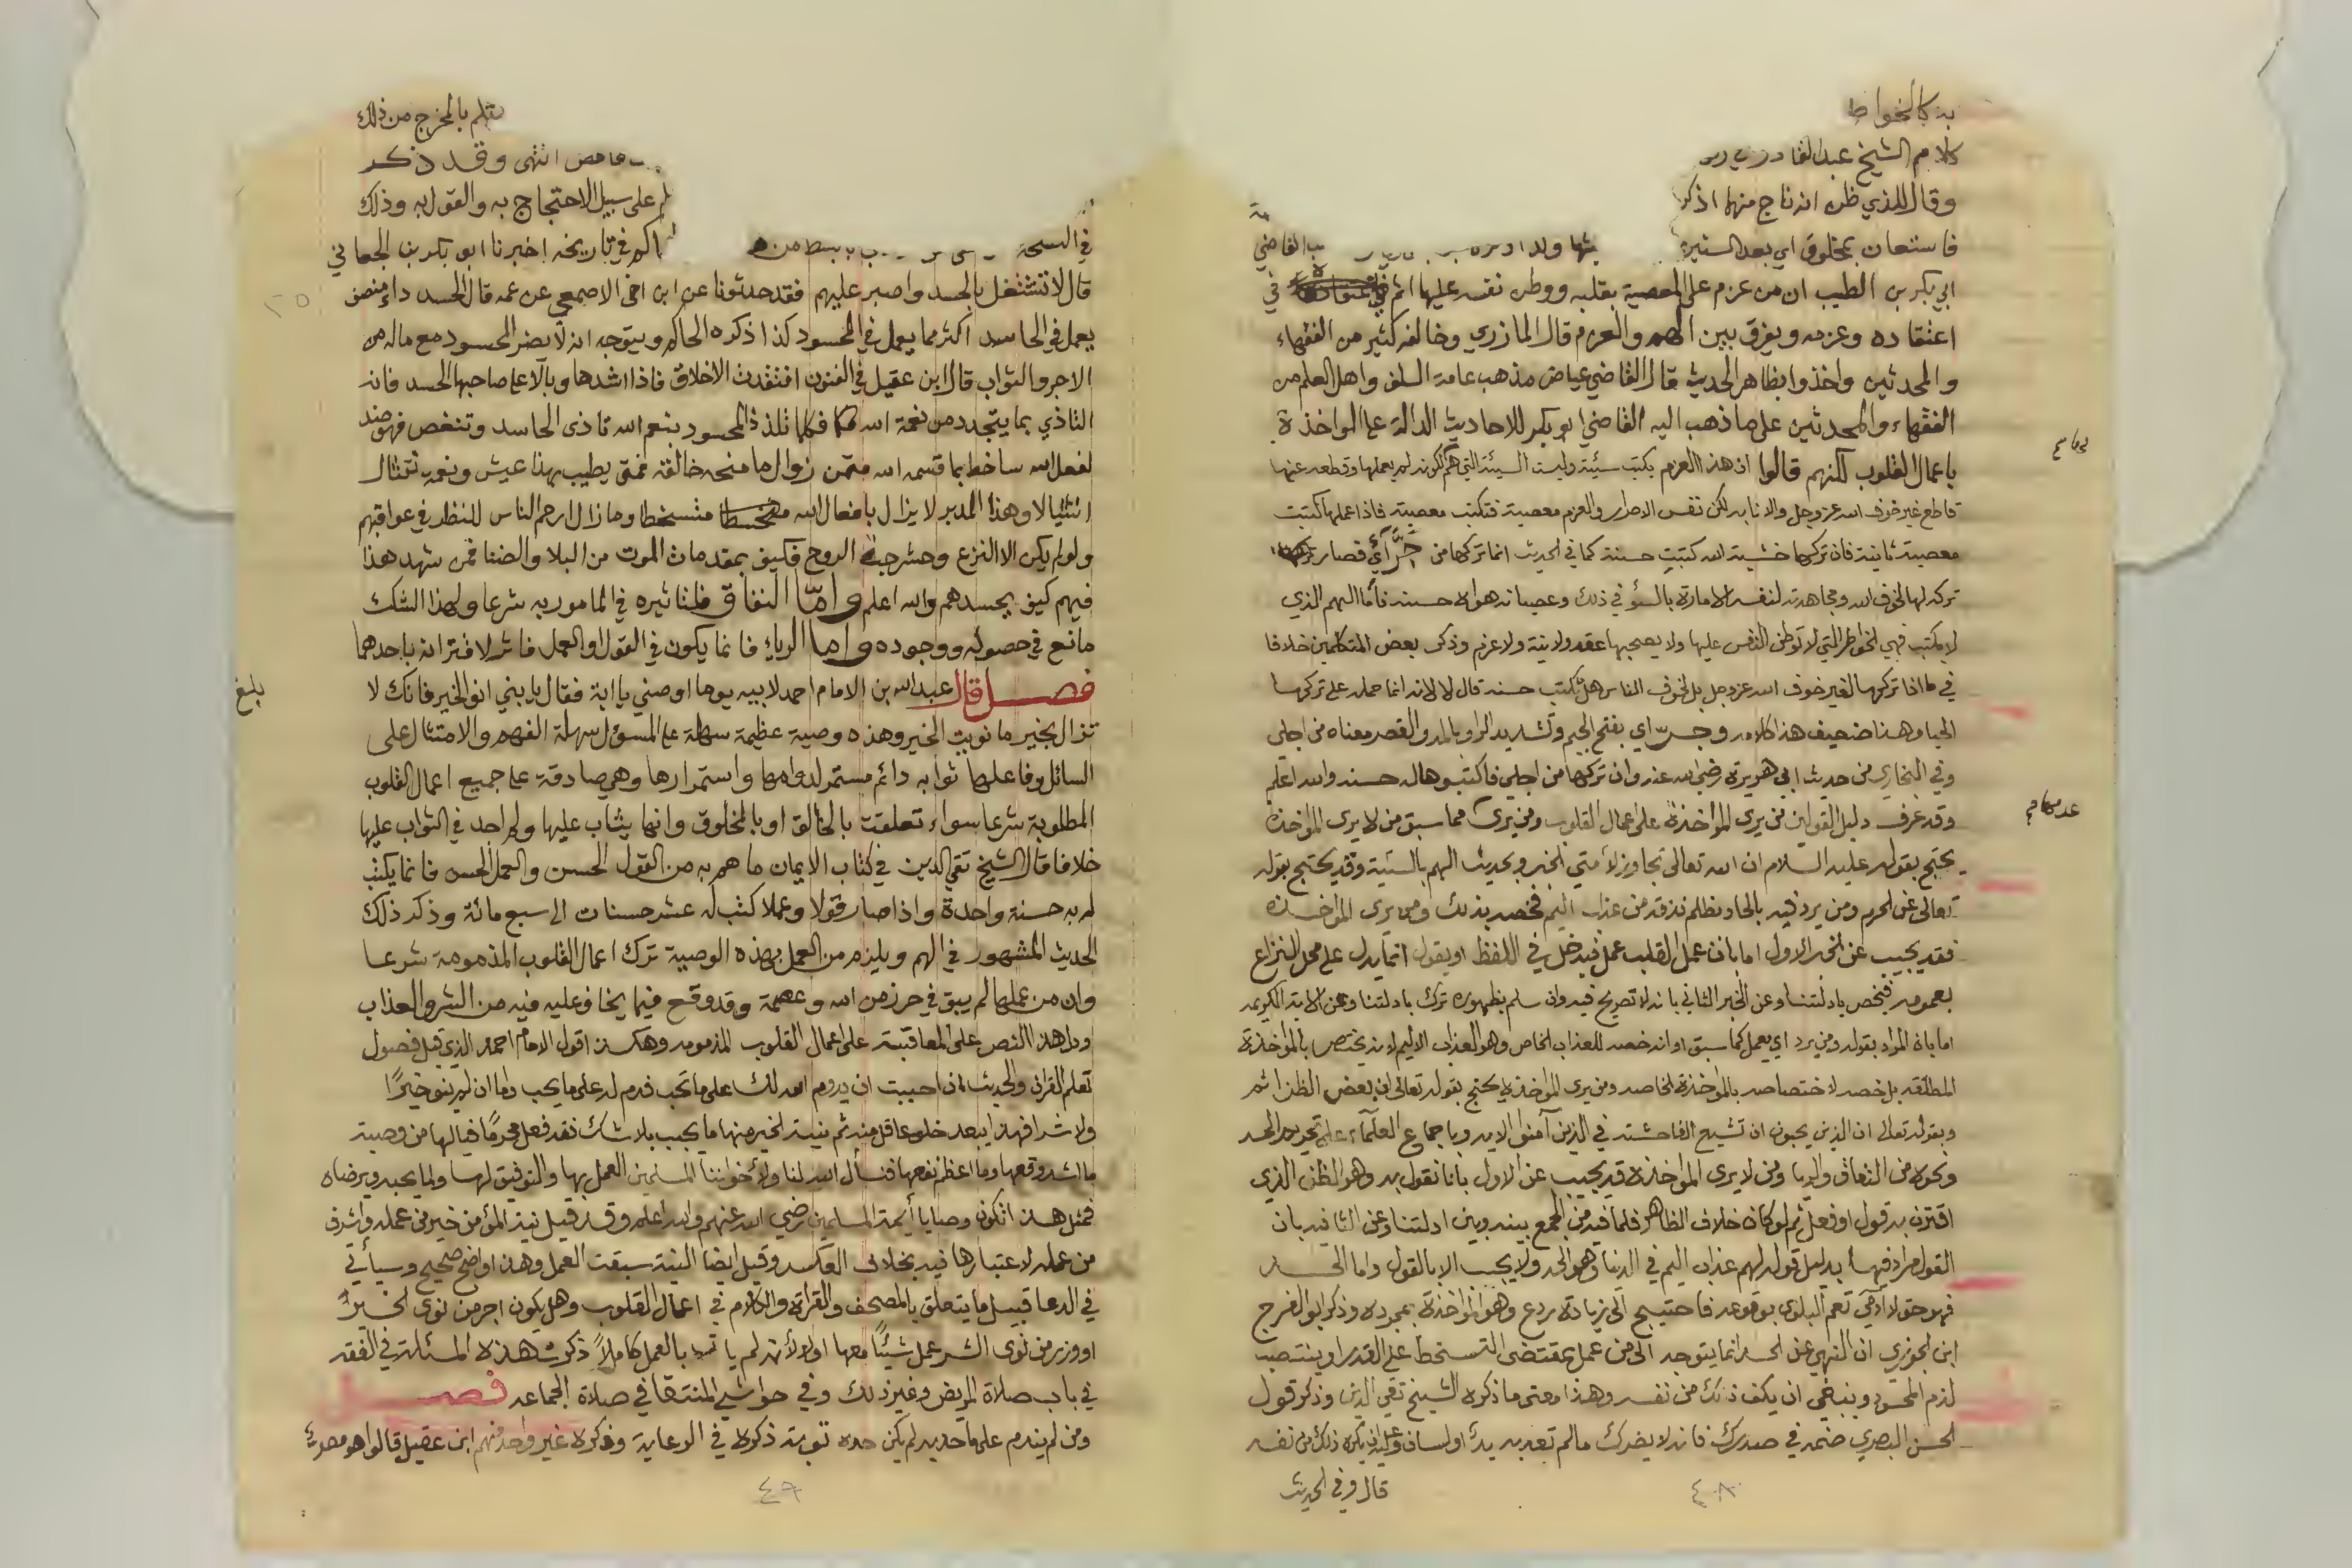 به كالخواط
كلام الشيخ عبد القادر
وقال للذي ظن انه ناج منهما اذكر
فاستعان بمخلوق اي بعد السنين القاضي
ابي بكر بن الطيب ان من عزم على المعصية بقلبه ووطن نفسه عليها اثم في
اعتقاده وعزمه ويفرق بين الهم والعزم قال المازري وخالفه كثير من الفقهاء
والمحدثين واخذوا بظاهر الحديث قال القاضي عياض مذهب عامة السلف واهل العلم من
الفقهاء والمحدثين على ما ذهب اليه القاضي ابو بكر للاحاديث الدالة على المواخذة
باعمال القلوب لكنهم قالوا ان هذا العزم يكتب سيئة وليست السيئة التي هم لكونه لم يعملها وقطعه عنها
قاطع غير خوف الله عز وجل والانابه لكن نفس الاصرار والعزم معصية فتكتب معصية فاذا عملها كتبت
معصية ثانية فان تركها خشية الله كتبت حسنة كما في الحديث انما تركها من جرّآي فصار
تركه لها لخوف الله ومجاهدته لنفسه الامارة بالسؤ في ذلك وعصيانه هواه حسنة فاما الهم الذي
لا يكتب فهي الخواطر التي لا توطن النفس عليها ولا يصحبها عقد ولا نية ولا عزم وذكر بعض المتكلمين خلافا
في ما اذا تركها لغير خوف الله عز وجل بل لخوف الناس هل تكتب حسنة قال لا لانه انما حمله على تركها
الحيا وهذا ضعيف هذا كلامه وجرّاي بفتح الجيم وتشديد الرا وبالمد والقصر معناه من اجلي
وفي البخاري من حديث ابي هريرة رضي الله عنه وان تركها من اجلي فاكتبوها له حسنة والله اعلم
وقد عرف دليل القولين من يرى المؤاخذة على اعمال القلوب ومن يرى مما سبق من لا يرى المواخذة
يحتج بقوله عليه السلام ان الله تعالى تجاوز لأمتي الخبر وبحديث الهم بالسيئة وقد يحتج بقوله
تعالى عن الحرم ومن يرد فيه بالحاد بظلم نذقه من عذاب اليم فخصه بذلك ومن يرى المواخذه
فقد يجيب عن الخبر الاول اما بان عمل القلب عمل فيدخل في اللفظ او يقول انما يدل على محل النزاع
بعمومه فنخص بادلتنا وعن الخبر الثاني بانه لا تصريح فيه وان سلم بظهوره ترك بادلتنا وعن الاية الكريمه
اما بان المراد بقوله ومن يرد اي يعمل كما سبق او انه خصه للعذاب الخاص وهو العذاب الاليم لا نه يختص بالمؤاخذة
المطلقه بل خصه لاختصاصه بالمؤاخذة الخاصه ومن يرى المواخذه يحتج بقوله تعالى ان بعض الظن اثم
وبقوله تعالى ان الذين يحبون ان تشيع الفاحشة في الذين آمنوا الايه وباجماع العلمآء على تحريم الحسد
ونحوه من النفاق والريا ومن لا يرى المواخذه قد يجيب عن الاول بانا نقول به وهو الظن الذي
اقترن به قول او فعل ثم لو كان خلاف الظاهر فلما فيه من الجمع بينه وبين ادلتنا وعن الثانيه بان
القول مراد فيها بدليل قوله لهم عذاب اليم في الدنيا وهو الحد ولا يجب الا بالقول واما الحسد
فهو حق لادمي تعم البلوى بوقوعه فاحتيج الى زيادة ردع وهو المؤاخذة بمجرده وذكر ابو الفرج
ابن الجوزي ان النهي عن الحسد انما يتوجه الى من عمل بمقتضى التسخط على القدر او ينتصب
لذم المحسود وينبغي ان يكف ذلك من نفسه وهذا معنى ما ذكره الشيخ تقي الدين وذكر قول
الحسن البصري ضمه في صدرك فانه لا يضرك ما لم تعد به يدًا او لسانا وعليه ان يكره ذلك من نفسه
قال وفي الحديث
٤٨
بالمخرج من ذلك
غامض انتهى وقد ذكر
على سبيل الاحتجاج به والقول به وذلك
في السحة في تاريخه اخبرنا ابو بكر بن الجعابي
قال لا تشتغل بالحسد واصبر عليهم فقد حدثونا عن ابن اخي الاصمعي عن عمه قال الحسد داء منصف
يعمل في الحاسد اكثر مما يعمل في المحسود كذا ذكره الحاكم ويتوجه انه لا يضر المحسود مع ماله من
الاجر والثواب قال ابن عقيل في الفنون افتقدت الاخلاق فاذا اشدها وبالا على صاحبها الحسد فانه
التاذي بما يتجدد من نعمة الله فكلما تلذذ المحسود بنعم الله تاذى الحاسد وتنغص فهو ضد
لفعل الله ساخط بما قسمه الله متمن زوال ما منحه خالقه فمتى يطيب بهذا عيش ونعمه تنثال
انثيالا وهذا المدبر لا يزال بافعال الله متسخطا وما زال ارحم الناس للنظر في عواقبهم
ولو لم يكن الا النزع وحشرجة الروح فكيف بمقدمات الموت من البلا والضنا فمن شهد هذا
فيهم كيف يحسدهم والله اعلم وامّا النفاق فلتاثيره في المامور به شرعا ولهذا الشك
مانع في حصوله ووجوده واما الرياء فانما يكون في القول والعمل فاثر لاقترانه باحدهما
فصل قال عبد الله بن الامام احمد لابيه يوما اوصني يا ابة فقال يا بني انو الخير فانك لا
تزال بخير ما نويت الخير وهذه وصية عظيمة سهلة على المسؤل سهلة الفهم والامتثال على
السائل وفاعلها ثوابه دائم مستمر لدوامها واستمرارها وهي صادقة على جميع اعمال القلوب
المطلوبة شرعا سواء تعلقت بالخالق او بالمخلوق وانها يثاب عليها ولم اجد في الثواب عليها
خلافا قال الشيخ تقي الدين في كتاب الايمان ما هم به من القول الحسن والعمل الحسن فانما يكتب
له به حسنة واحدة واذا صار قولا وعملا كتب له عشر حسنات الى سبع مائة وذكر ذلك
الحديث المشهور في الهم ويلزم من العمل بهذه الوصية ترك اعمال القلوب المذمومة شرعا
وان من عملها لم يبق في حرز من الله وعصمة وقد وقع فيما يخاف عليه فيه من الشر والعذاب
ودل هذا النص على المعاقبة على اعمال القلوب المذمومه وهكذا قول الامام احمد الذي قبل فصول
تعلم القران والحديث ان احببت ان يدوم الله لك على ما تحب فدم له على ما يحب واما ان لم ينو خيرًا
ولا شرا فهذا يبعد خلو عاقل منه ثم نية الخير منها ما يجب بلا شك فقد فعل محرمًا فيالها من وصية
ما اشد وقعها وما اعظم نفعها فنسأل الله لنا ولأخواننا المسلمين العمل بها والتوفيق لها ولما يحبه ويرضاه
فمثل هذا تكون وصايا أيمة المسلمين رضي الله عنهم والله اعلم وقد قيل نية المؤمن خير من عمله واشرف
من عمله لاعتبارها فيه بخلاف العكس وقيل ايضا النية سبقت العمل وهذا واضح صحيح وسيأتي
في الدعا قبيل ما يتعلق بالمصحف والقراة والكلام في اعمال القلوب وهل يكون اجر من نوى الخير
او وزر من نوى الشر عمل شيئًا معها اولا لأنه لم يات بالعمل كاملاً ذكرت هذه المسئلة في الفقه
في باب صلاة المريض وغير ذلك وفي حواشي المنتقا في صلاة الجماعه فصل
ومن لم يندم على ما حد به لم يكن حده توبة ذكره في الرعاية وذكره غير واحد منهم ابن عقيل قالوا هو مصر
بلغ
٤٩